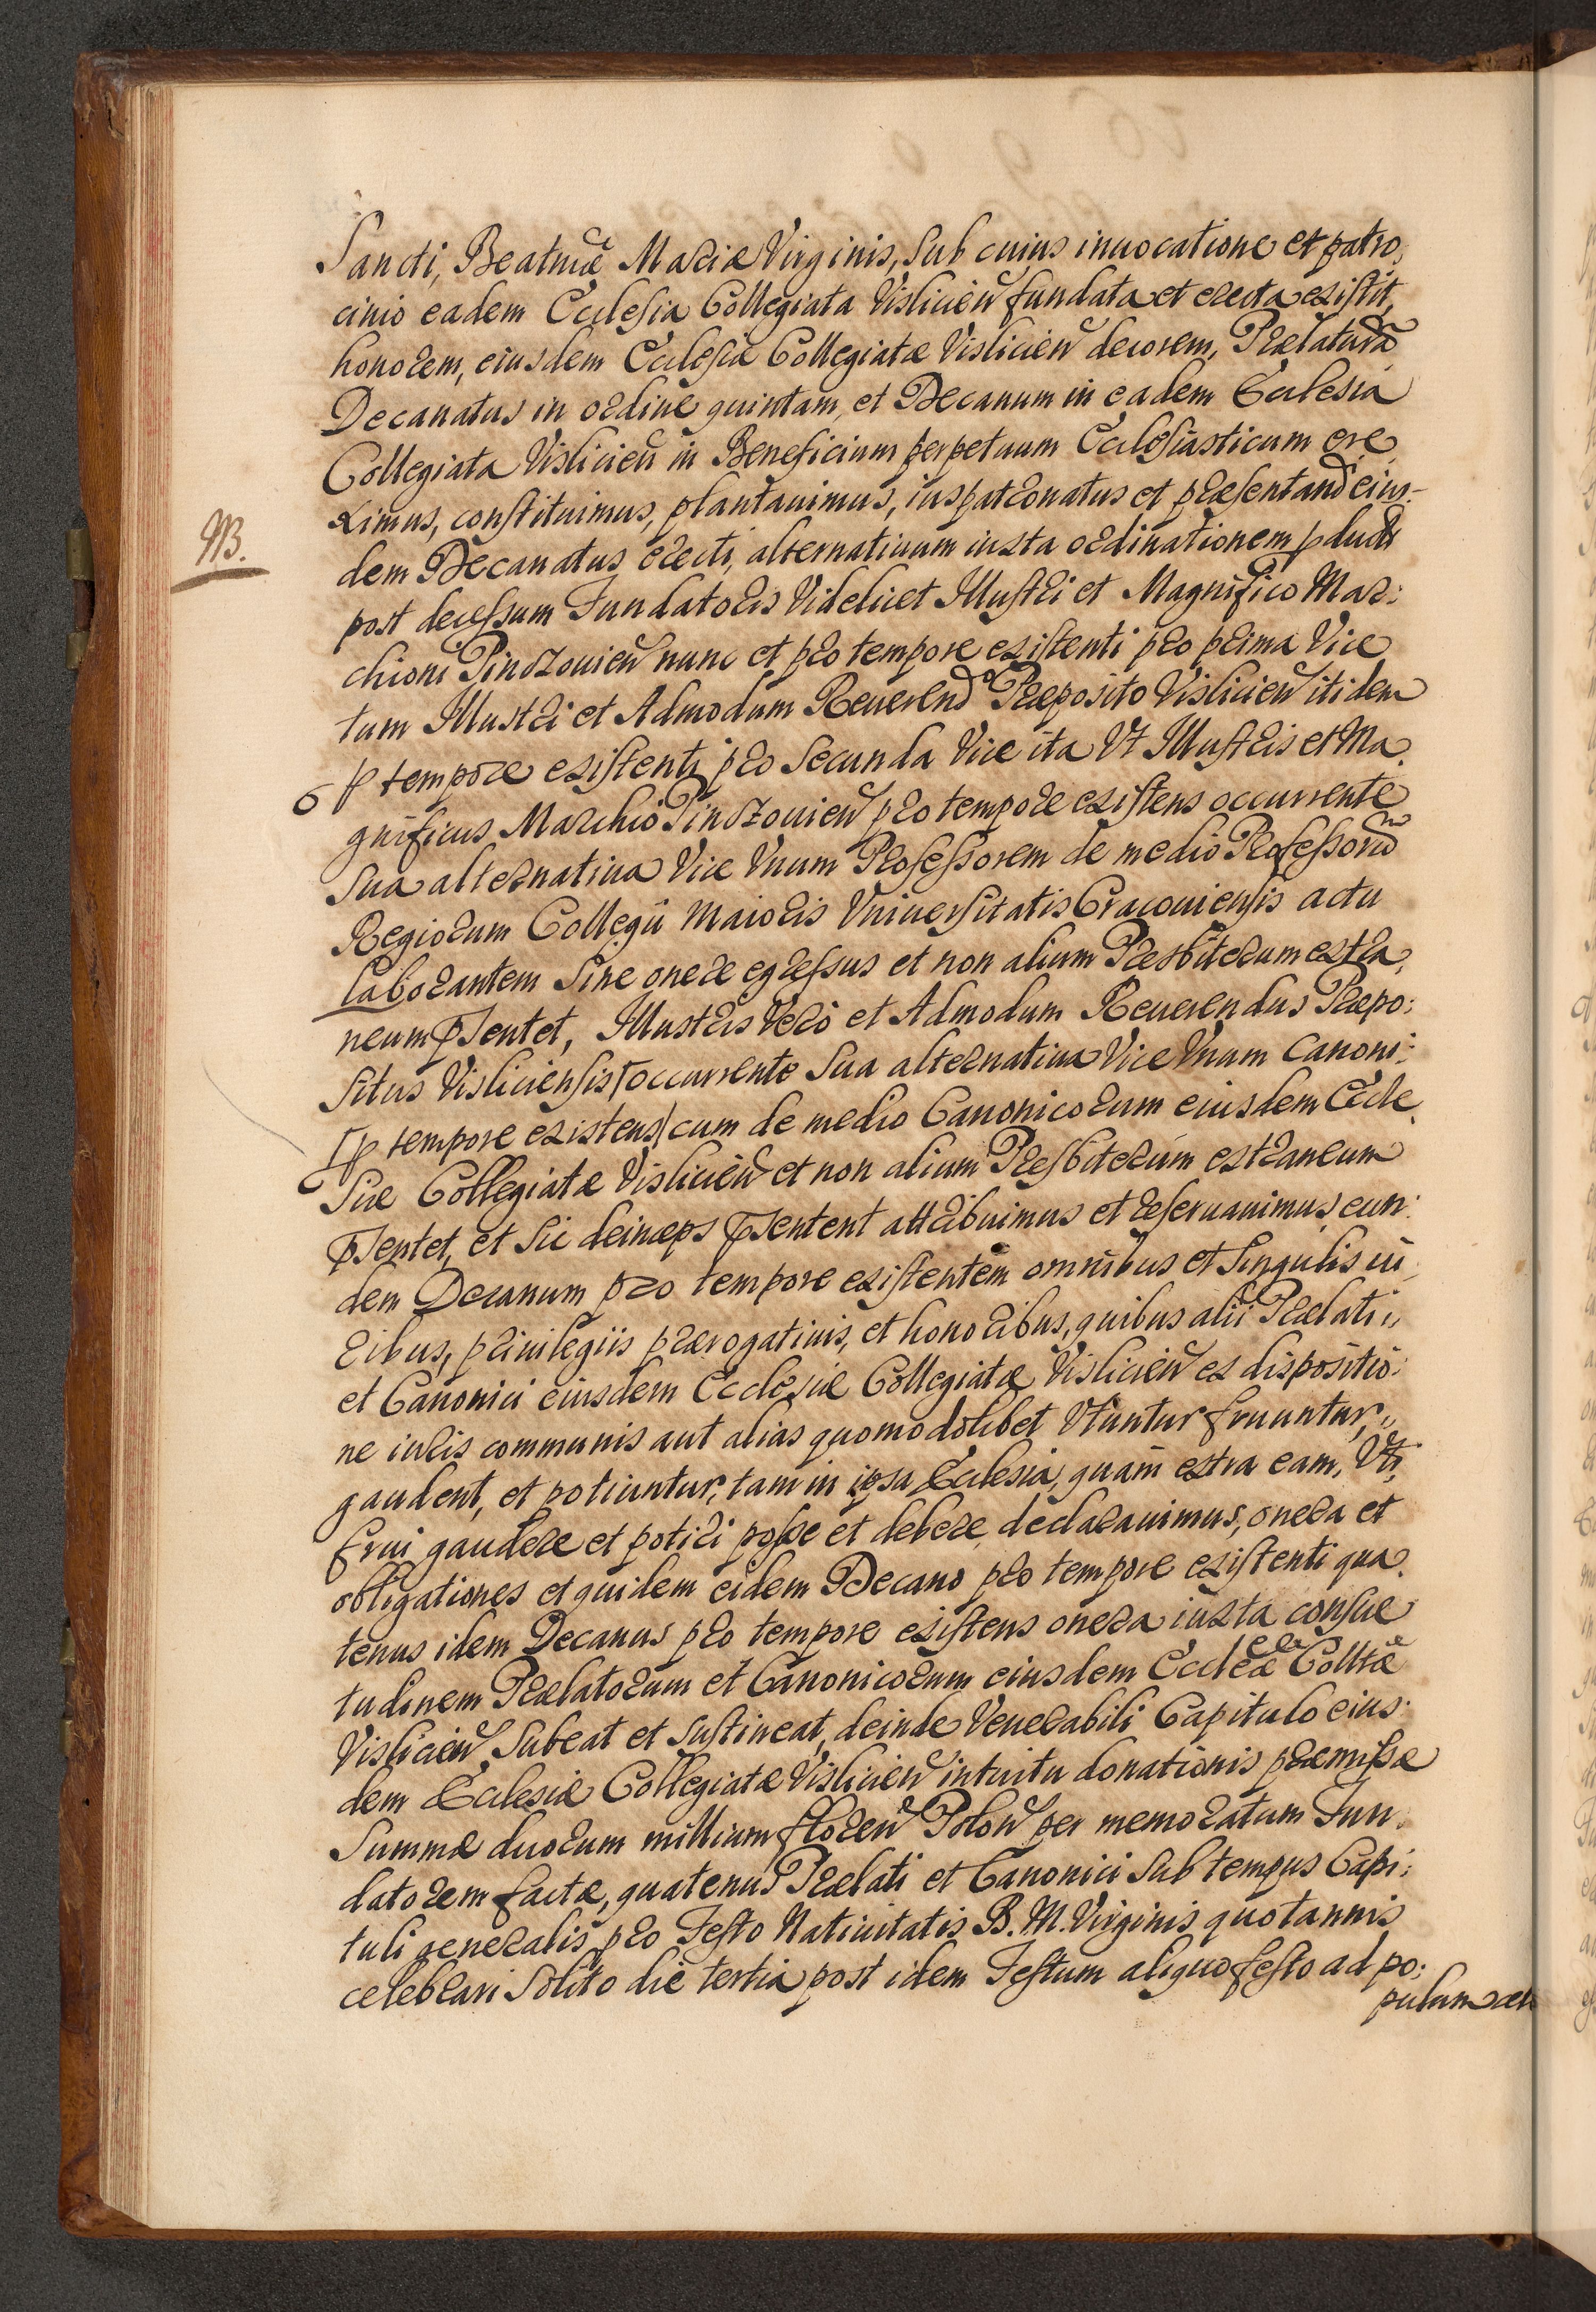 Sancti, Beatmæ Mariæ Virginis, sub cuius inuocatione et patro,
cinio eadem Ecclesia Collegiata Vislicień fundata et erecta existit,
honorem, eiusdem Ecclesiæ Collegiatæ Vislicień decorem, Prælaturã
Decanatus in ordine quintam, et Decanum in eadem Ecclesia
Collegiata Vislicień in Beneficium perpetuum Ecclesiasticum ere,
ximus, constituimus, plantauimus, iuspatronatus et præsentandi eius-
NB.
dem Decanatus erecti, alternatiuum iuxta ordinationem
post decessum Fundatoris Videlicet Illustri et Magnifico Mar:
chioni Pindzouień nunc et pro tempore existenti pro prima Vice
tum Illustri et Admodum Reuerendo Præposito Vislicień itidem
p tempore existenti pro Secunda Vice ita Vt Illustris et Ma,
gnificus Marchio Pindzouień pro tempore existens occurrente
sua alternatiua Vice Vnum Professorem de medio Professorũ
Regiorum Collegij Maioris Vniuersitatis Cracouiensis actu
laborantem sine onere egressus et non alium Presbiterum extra,
neum pſentet, Illustris Verò et Admodum Reuerendus Præpo:
situs Visliciensis occurrente sua alternatiua Vice Vnum Canoni:
p tempore existens cum de medio Canonicorum eiusdem Eccle,
siæ Collegiatæ Vislicień et non alium Presbiterum extraneum
pſentet, et sic deinceps pſentent attribuimus et reseruauimus eun:
dem Decanum pro tempore existentem omnibus et singulis iu,
ribus, priuilegiis prærogatiuis, et honoribus, quibus alii Prælati,,
et Canonici eiusdem Ecclesiæ Collegiatæ Vislicień ex dispositio:
ne iuris communis aut alias quomodolibet Vtuntur fruuntur,,
gaudent, et potiuntur, tam in ipsa Ecclesia, quàm extra eam, Vti,
frui gaudere et potiri posse et debere declarauimus, onera et
obligationes et quidem eidem Decano pro tempore existenti qua,
tenus idem Decanus pro tempore existens onera iuxta consue
tudinem Prælatorum et Canonicorum eiusdem Eccleæ Colltæ
Vislicień subeat et sustineat, deinde Venerabili Capitulo eius:
dem Ecclesiæ Collegiatæ Vislicień intuitu donationis præmissæ
Summæ duorum millium floreń Poloń per memoratum Fun:
datorem factæ, quatenus Prælati et Canonici sub tempus Capi:
tuli generalis pro Festo Natiuitatis B. M. Virginis quotannis
celebrari solito die tertia post idem Festum aliquo festo ad po:
pulum